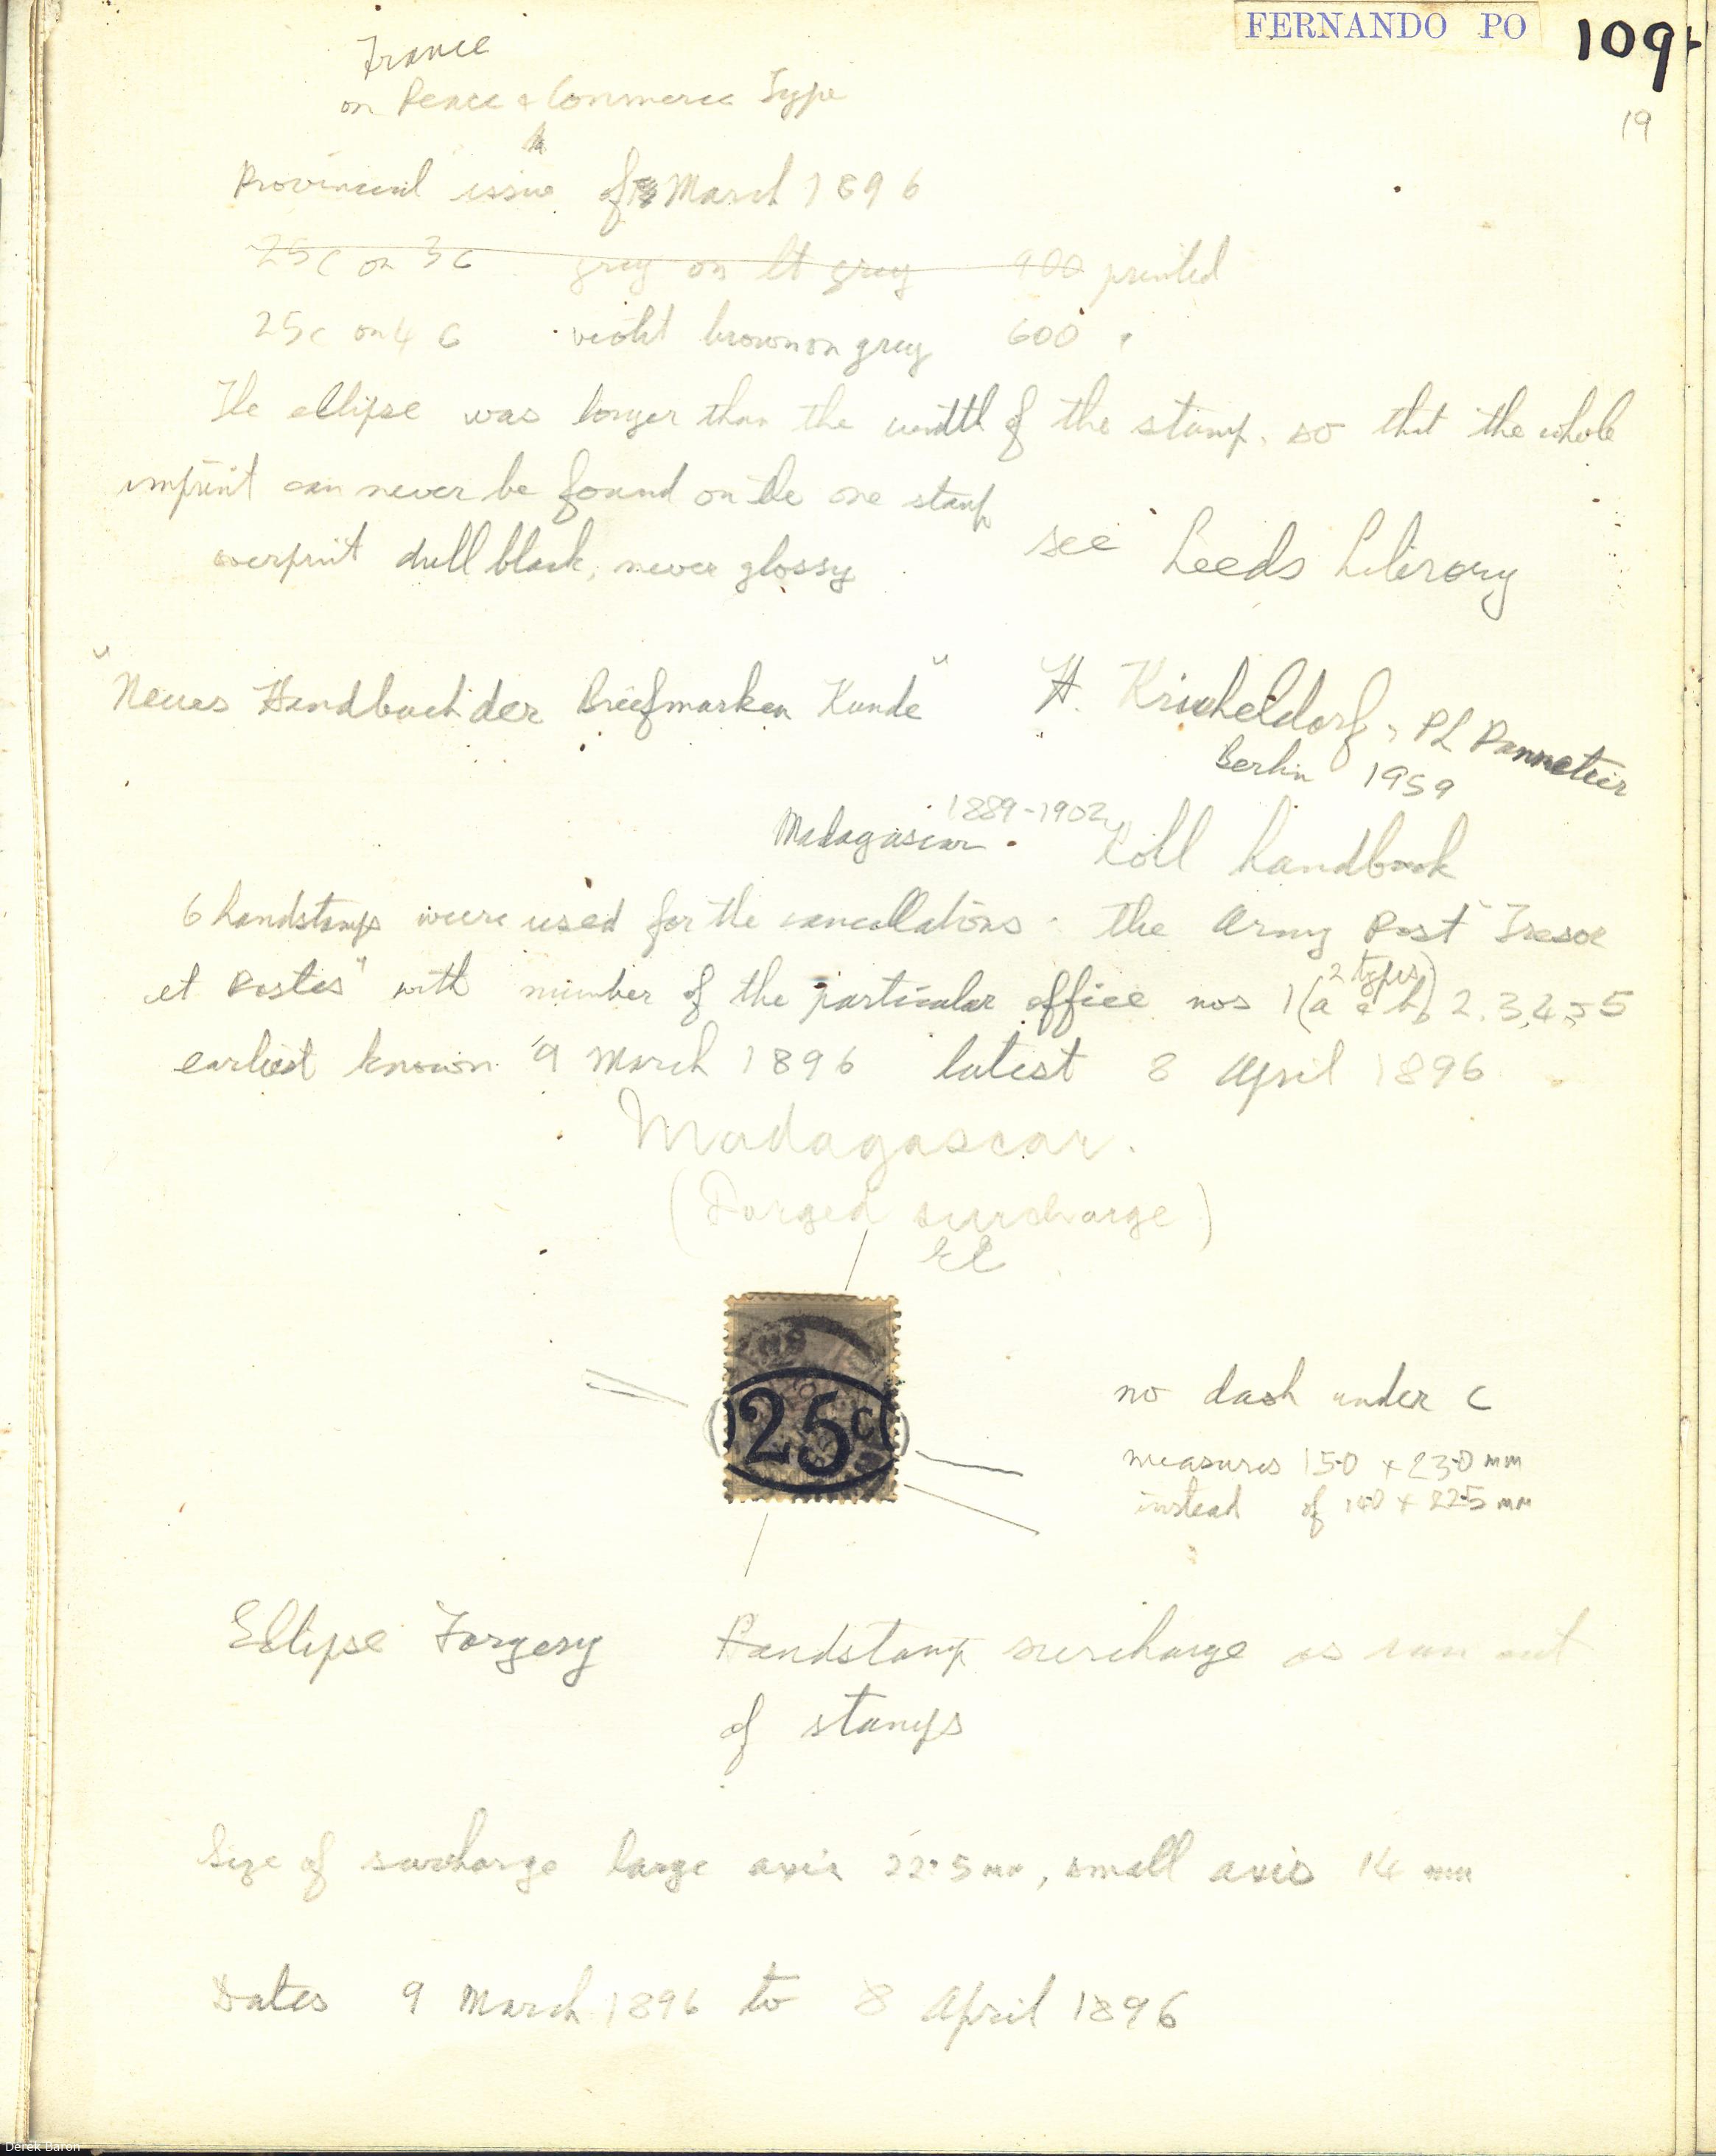 FERNANDO PO 109
19
France
on Peace & Commerce Type
Provincial issue of March 1896
25c on 3c grey on lt grey 900 printed
25c on 4c violet brown on grey 600 "
The ellipse was longer than the width of the stamp, so that the whole
imprint can never be found on the one stamp
overprint dull black, never glossy
see Leeds Library
"Neues Handbuch der Briefmarken Kunde" H. Kricheldorf, PL Pannetier
Berlin 1959
Madagascar 1889-1902 Kohl handbook
6 handstamps were used for the cancellations - the Army Post "Tresor
et Postes" with number of the particular office nos 1 (a & b) 2 types 2, 3, 4, 5
earliest known 9 March 1896 latest 8 April 1896
Madagascar.
(Forged surcharge)
25c
no dash under c
measures 15.0 x 23.0 mm
instead of 14.0 x 22.5 mm
Ellipse Forgery Handstamp surcharge as ran out
of stamps
Size of surcharge large axis 22.5 mm, small axis 14 mm
Dates 9 March 1896 to 8 April 1896
Derek Baron